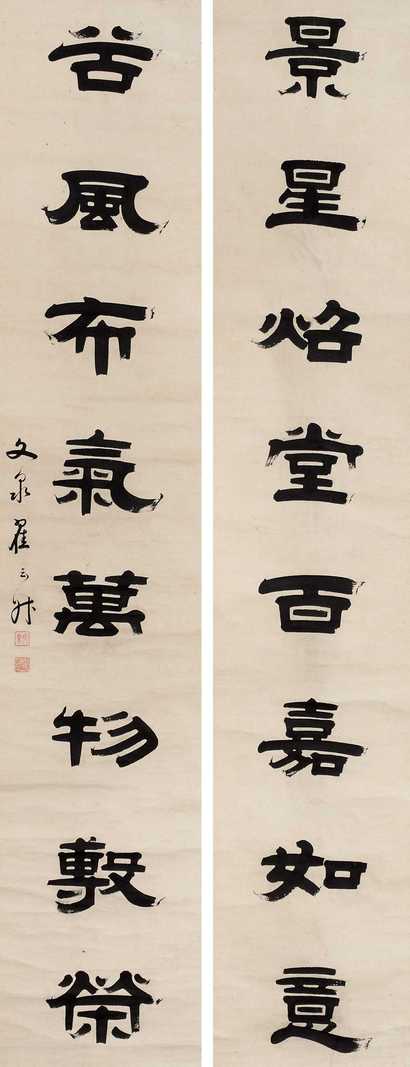 景星炤堂百嘉如意
谷風布氣萬物敷榮
文泉翟云升